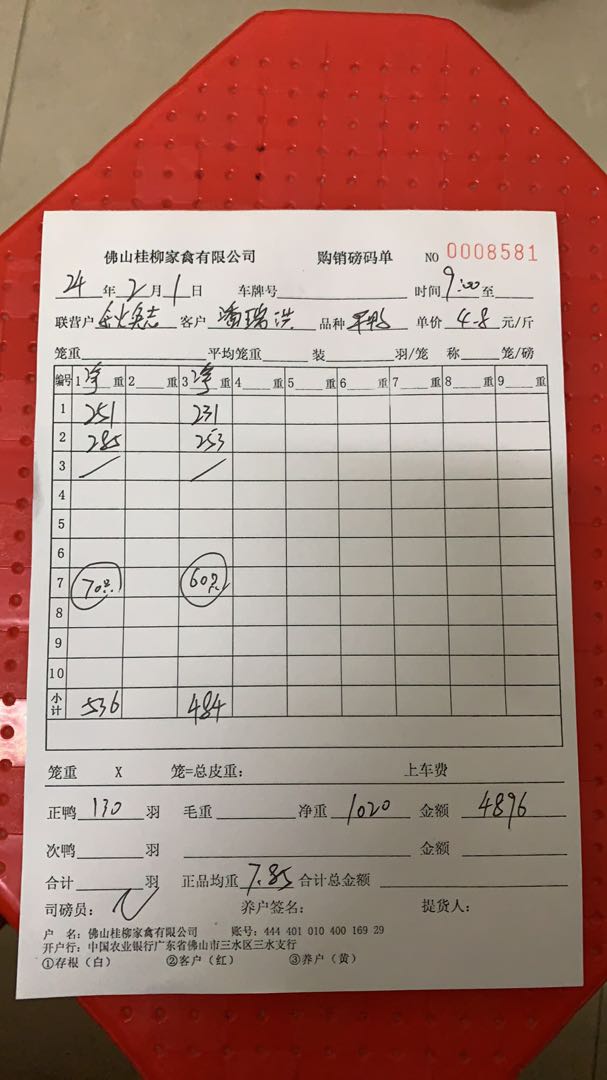 佛山桂柳家禽有限公司 购销磅码单 NO 0008581
24年2月1日 车牌号 时间9:00至
联营户 客户 潘瑞洪 品种 单价4.8元/斤
笼重 平均笼重 装 羽/笼 称 笼/磅
编号 1净重 2 重 3净重 4 重 5 重 6 重 7 重 8 重 9 重
1 251 231
2 285 253
3 / /
4
5
6
7 70只 60只
8
9
10
小计 536 484
笼重 X 笼=总皮重: 上车费
正鸭 130 羽 毛重 净重 1020 金额 4896
次鸭 羽 金额
合计 羽 正品均重 7.85 合计总金额
司磅员: 养户签名: 提货人:
户 名: 佛山桂柳家禽有限公司 账号: 444 401 010 400 169 29
开户行: 中国农业银行广东省佛山市三水区三水支行
①存根(白) ②客户(红) ③养户(黄)